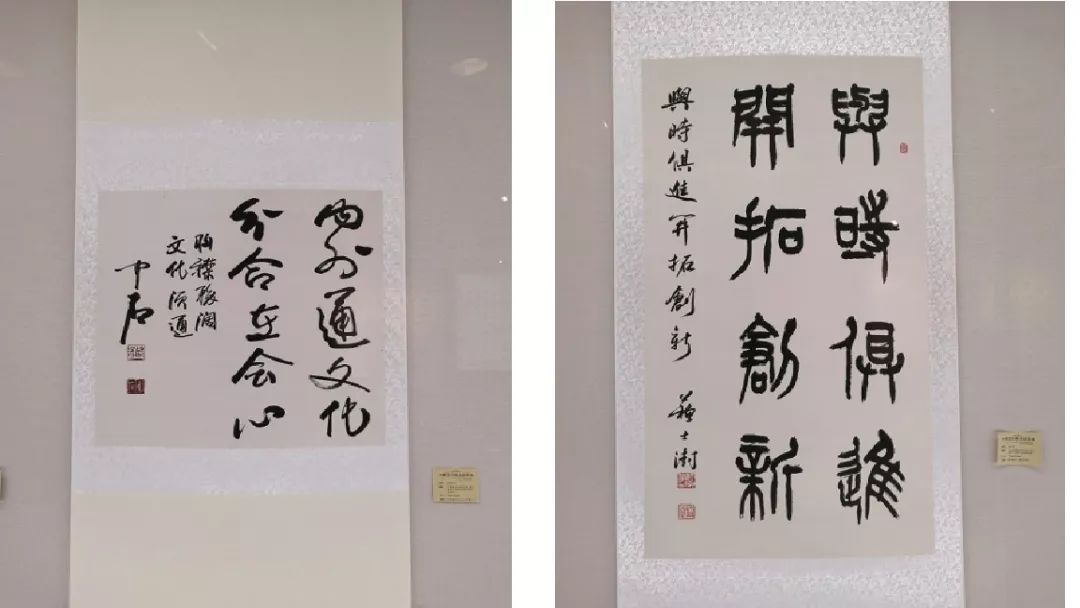 内外通文化
分合在会心
胸襟阔
文化通
中石
與時俱進
開拓創新
與時俱進开拓創新 蘇士澍